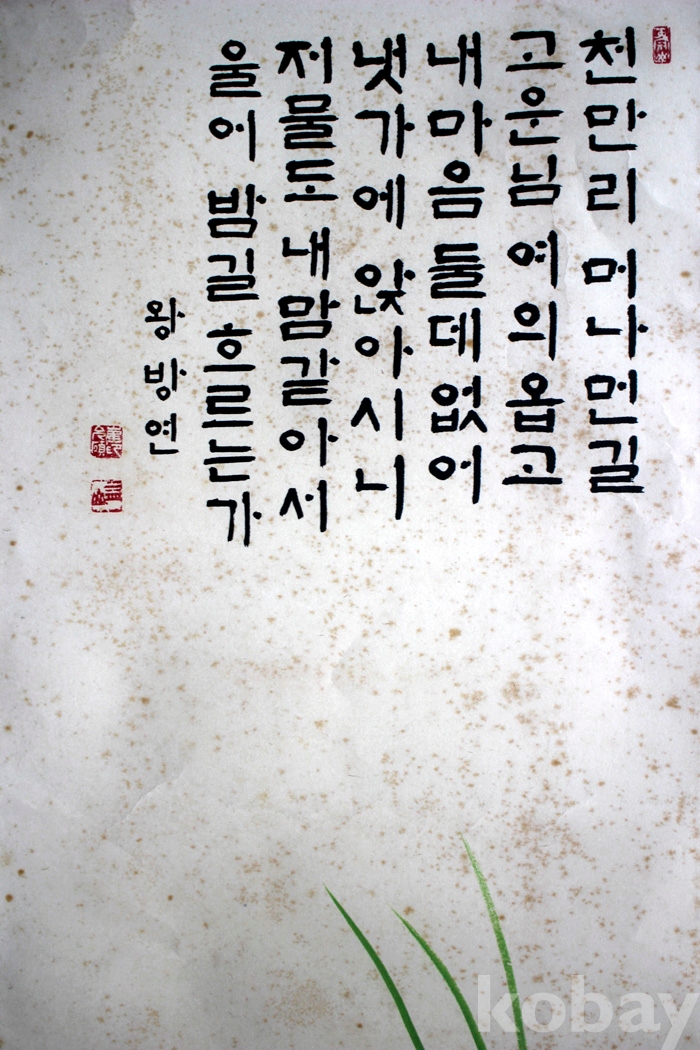 천만리 머나먼길
고운님 여의옵고
내마음 둘데없어
냇가에 앉아시니
저물도 내맘같아서
울어 밤길 흐르는가
왕방연
kobay